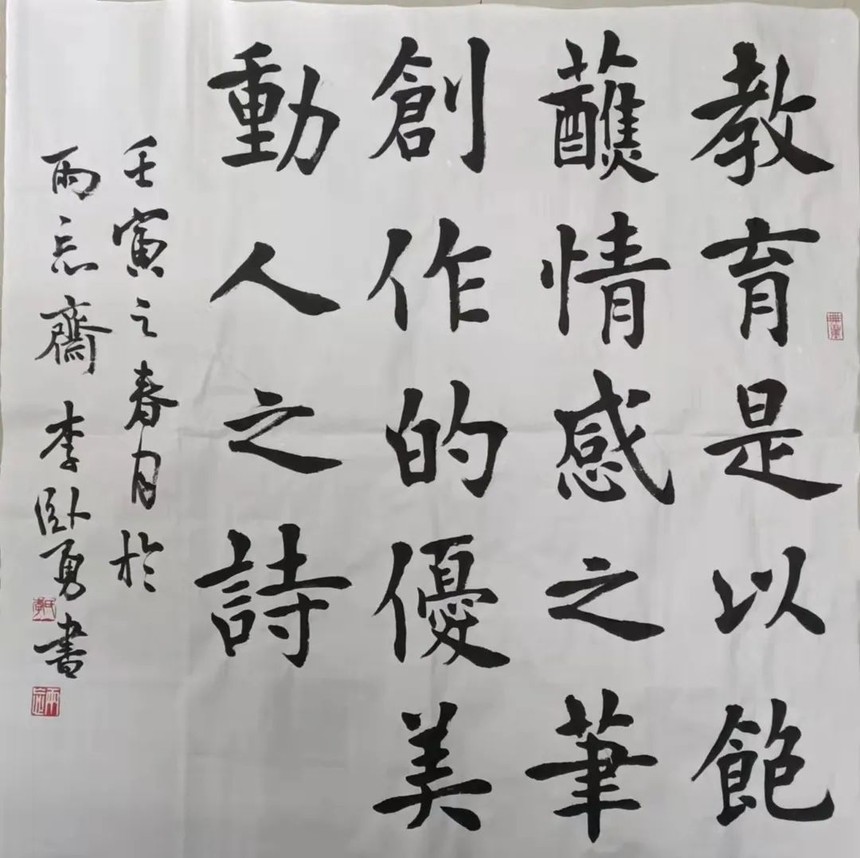 教育是以飽
蘸情感之筆
創作的優美
動人之詩
壬寅之春月於
雨忘齋李卧勇書